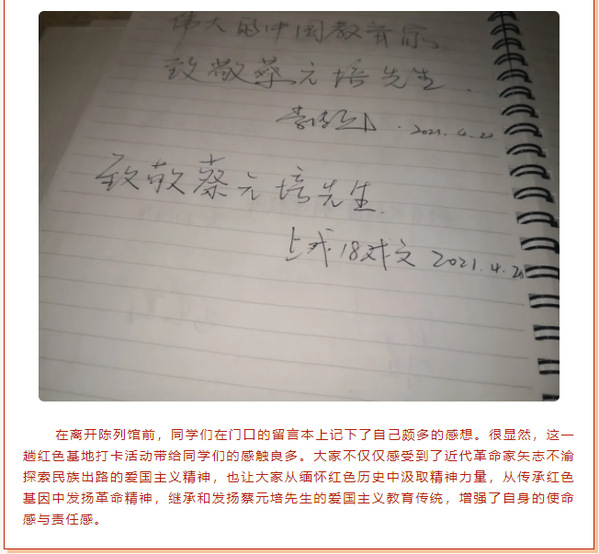 伟大的中国教育家
致敬蔡元培先生.
2021.4.20
致敬蔡元培先生.
上戏18戏文 2021.4.20
在离开陈列馆前，同学们在门口的留言本上记下了自己颇多的感想。很显然，这一
趟红色基地打卡活动带给同学们的感触良多。大家不仅仅感受到了近代革命家矢志不渝
探索民族出路的爱国主义精神，也让大家从缅怀红色历史中汲取精神力量，从传承红色
基因中发扬革命精神，继承和发扬蔡元培先生的爱国主义教育传统，增强了自身的使命
感与责任感。